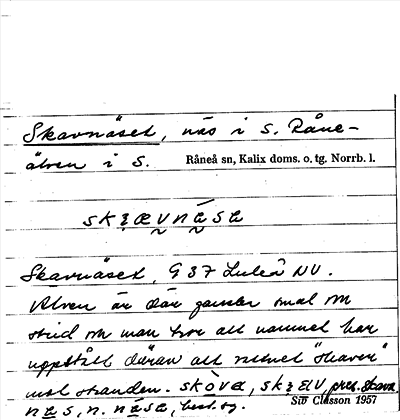 Skavnäset, näs i S. Råne-
älven i S. Råneå sn, Kalix doms. o. tg. Norrb. l.
Skavnäset, G 37 Luleå NV.
Älven är där ganska smal och
strid och man tror att namnet har
uppstått därav att vattnet "skaver"
mot stranden. pres. skava
n. best. sg.
Siv Classon 1957